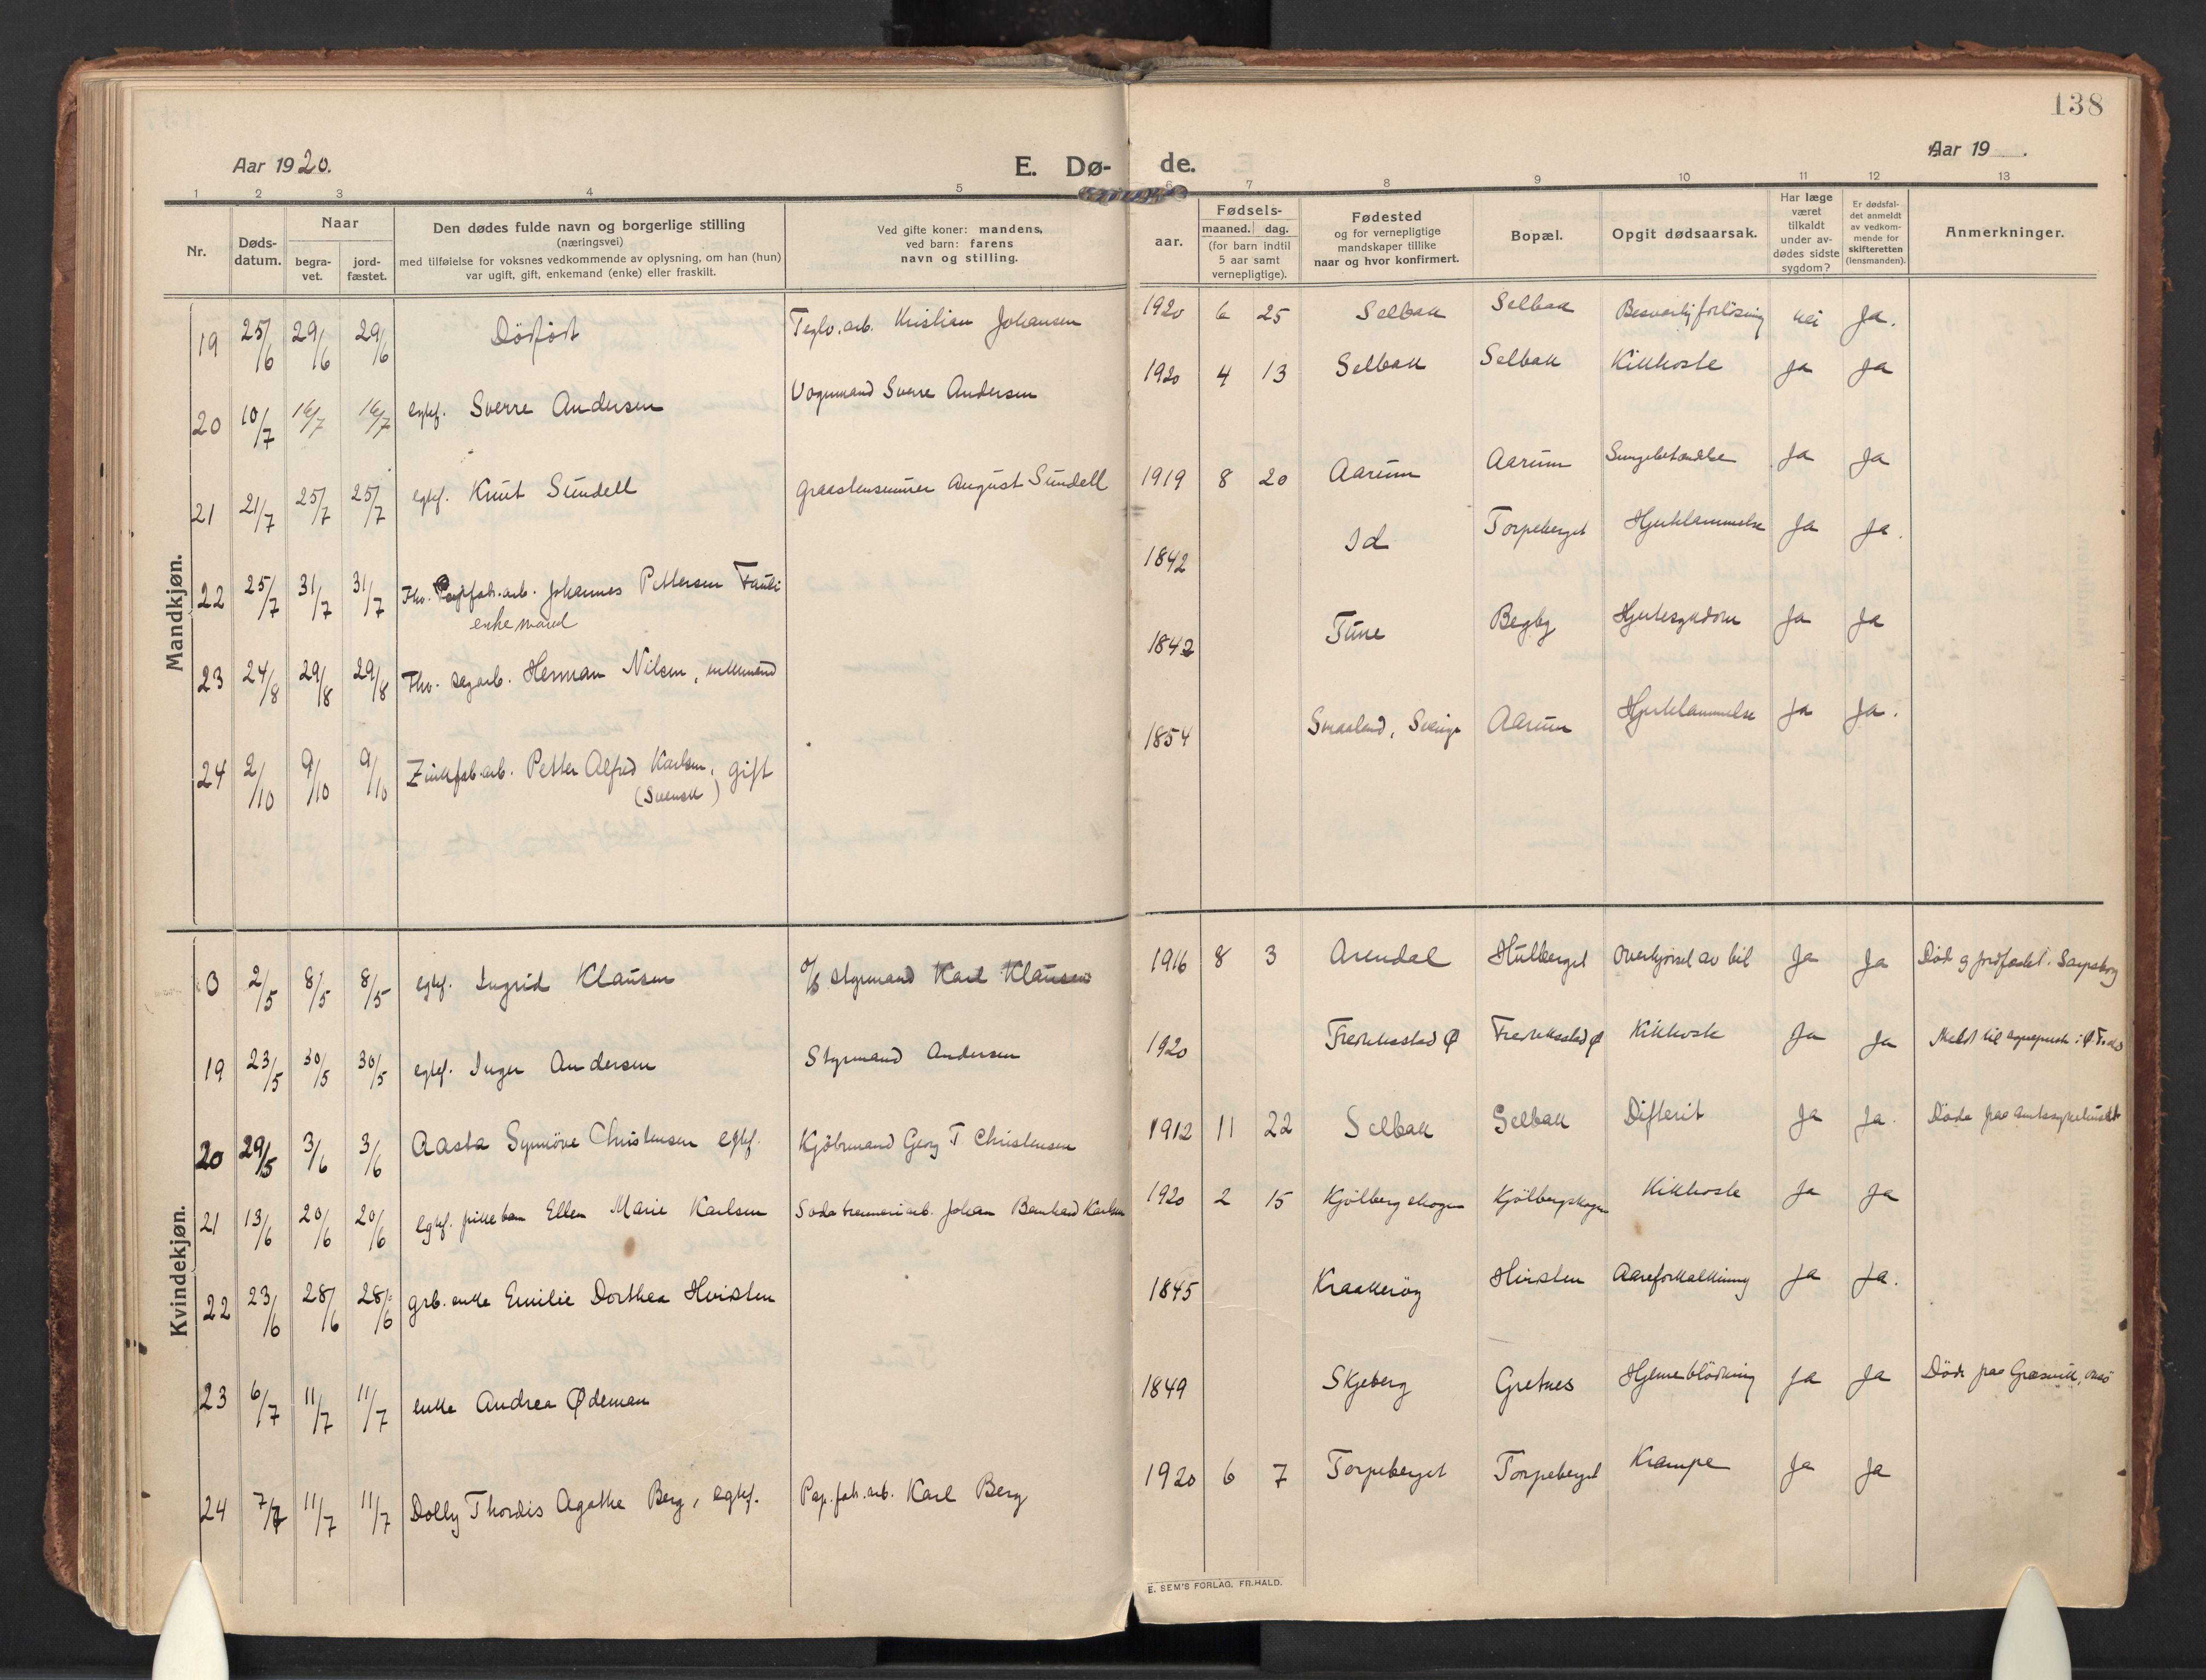 138
Aar 1920.
E. Dø- de.
Aar 19 .
1 2 3 4 5 6 7 8 9 10 11 12 13
Nr.
Døds-
datum.
Naar
begra-
vet.
jord-
fæstet.
Den dødes fulde navn og borgerlige stilling
(næringsvei)
med tilføielse for voksnes vedkommende av oplysning, om han (hun)
var ugift, gift, enkemand (enke) eller fraskilt.
Ved gifte koner: mandens,
ved barn: farens
navn og stilling.
Fødsels-
aar.
maaned. dag.
(for barn indtil
5 aar samt
vernepligtige).
Fødested
og for vernepligtige
mandskaper tillike
naar og hvor konfirmert.
Bopæl.
Opgit dødsaarsak.
Har læge
været
tilkaldt
under av-
dødes sidste
sygdom?
Er dødsfal-
det anmeldt
av vedkom-
mende for
skifteretten
(lensmanden).
Anmerkninger.
Mandkjøn.
19 25/6 29/6 29/6 Dødfødt Teglv.arb. Kristian Johansen 1920 6 25 Selbak Selbak Besværlig forløsning nei Ja.
20 10/7 16/7 16/7 egtef. Sverre Andersen Vognmand Sverre Andersen 1920 4 13 Selbak Selbak Kikhoste Ja Ja
21 21/7 25/7 25/7 egtef. Knut Sundell Graastensmurer August Sundell 1919 8 20 Aarum Aarum Lungebetændelse Ja Ja
22 25/7 31/7 31/7 Fhv. Papfab.arb. Johannes Pettersen Fauli 1842 Id Torpeberget Hjertelammelse Ja Ja.
enkemand
23 24/8 29/8 29/8 Fhv. sagarb. Herman Nilsen, enkemand 1842 Tune Begby Hjertesygdom Ja Ja
24 2/10 9/10 9/10 Zinkfab.arb. Petter Alfred Karlsen, gift 1854 Smaaland, Sverige Aarum Hjertelammelse Ja Ja.
(Svensk)
Kvindekjøn.
0 2/5 8/5 8/5 egtef. Ingrid Klausen Styrmand Karl Klausen 1916 8 3 Arendal Hulberget Overkjørsel av bil Ja Ja Død og jordfæstet i Sarpsborg
19 23/5 30/5 30/5 egtef. Inger Andersen Styrmand Andersen 1920 Fredrikstad Ø Fredrikstad Ø Kikhoste Ja Ja Meldt til sogneprest i Ø. F.stad
20 29/5 3/6 3/6 Aasta Synnøve Christensen egtef. Kjøbmand Georg T Christensen 1912 11 22 Selbak Selbak Difterit Ja Ja. Døde paa amtssykehuset
21 13/6 20/6 20/6 Egtef. pikebarn Ellen Marie Karlsen Johan Bernhard Karlsen 1920 2 15 Kjølbergskogen Kjølbergskogen Kikhoste Ja Ja
22 23/6 28/6 28/6 grb. enke Emilie Dorthea Hvidsten 1845 Kraakerøy Hvidsten Aareforkalkning Ja Ja.
23 6/7 11/7 11/7 enke Andrea Ødeman 1849 Skjeberg Gretnes Hjerneblødning Ja Ja Døde paa Græsvik, Onsø
24 7/7 11/7 11/7 Dolly Thordis Agathe Berg, egtef. Pap.fab.arb. Karl Berg 1920 6 7 Torpeberget Torpeberget Krampe Ja Ja
E. SEM'S FORLAG, FR.HALD.